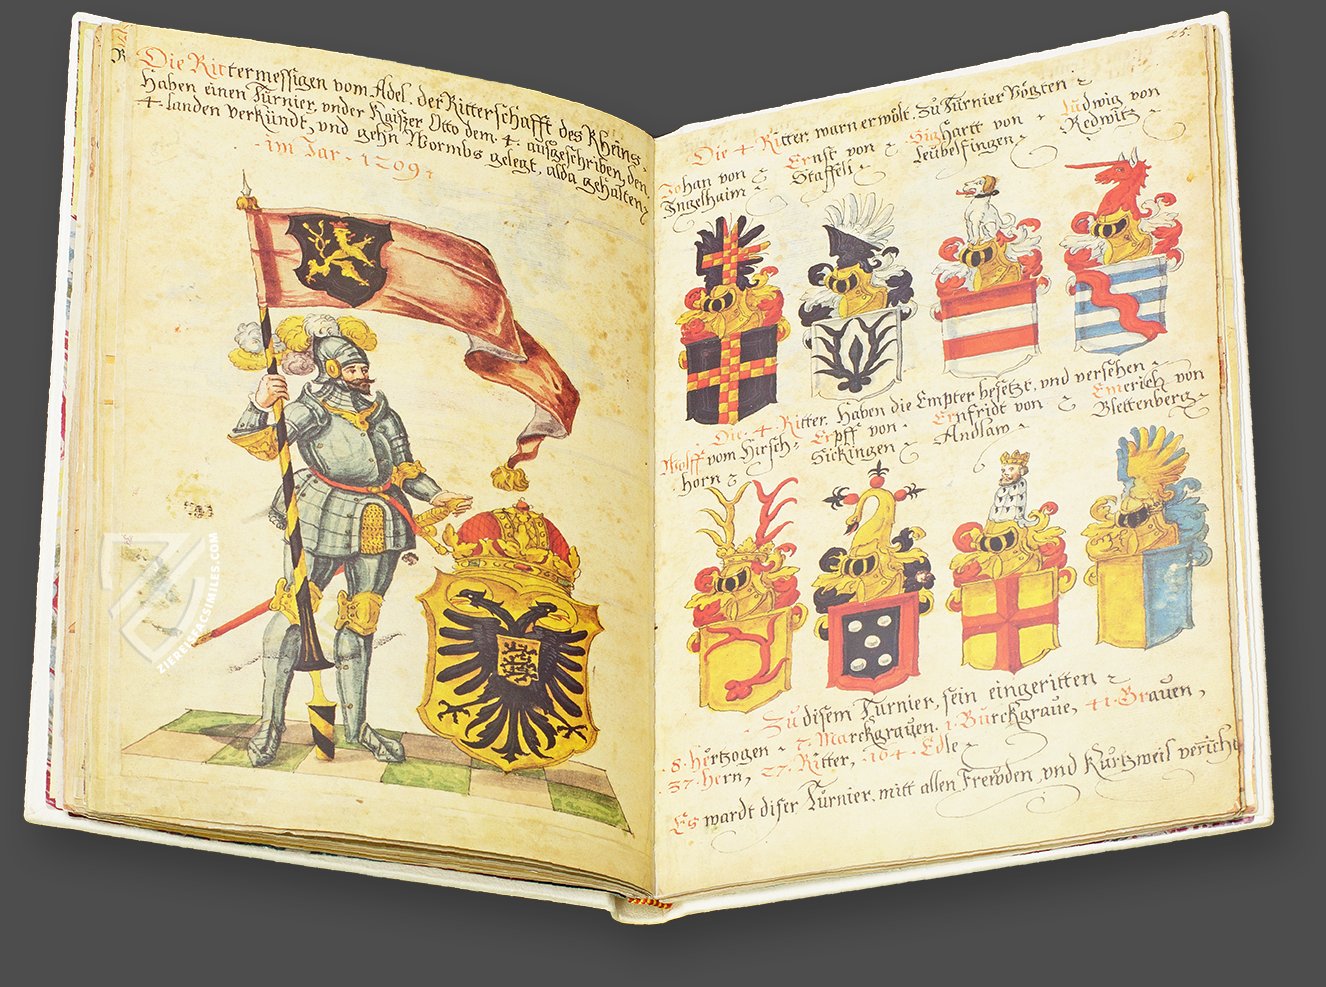 Die Rittermessigen vom Adel. der Ritterschafft des Rheins.
Haben einen Turnier, vnder Kaiszer Otto dem .4. ausgeschriben, den
4. landen verkündt, vnd gehn Wormbs gelegt, alda gehalten
.im Jar. 1209.
25.
Die .4. Ritter, warn erwölt. zu Turnier Vögten
Johan von Ingelhaim
Ernst von Staffeli
Sighartt von Leübelfingen
Ludwig von Redwitz
Die .4. Ritter. Haben die Empter besetzt, vnd versehen
Wolff vom Hirschhorn
Erpff von Sickingen
Ernfridt von Andlaw
Emerich von Blettenberg
Zu disem Turnier, sein eingeritten
.8. hertzogen 7. Marckgrauen. 1. Burckgraue, 41. Grauen,
37. Hern, 27. Ritter, .164. Edle
Es wardt diser Turnier. mitt allen Frewden vnd Kurtzweil
ZIEREIS FACSIMILES.COM